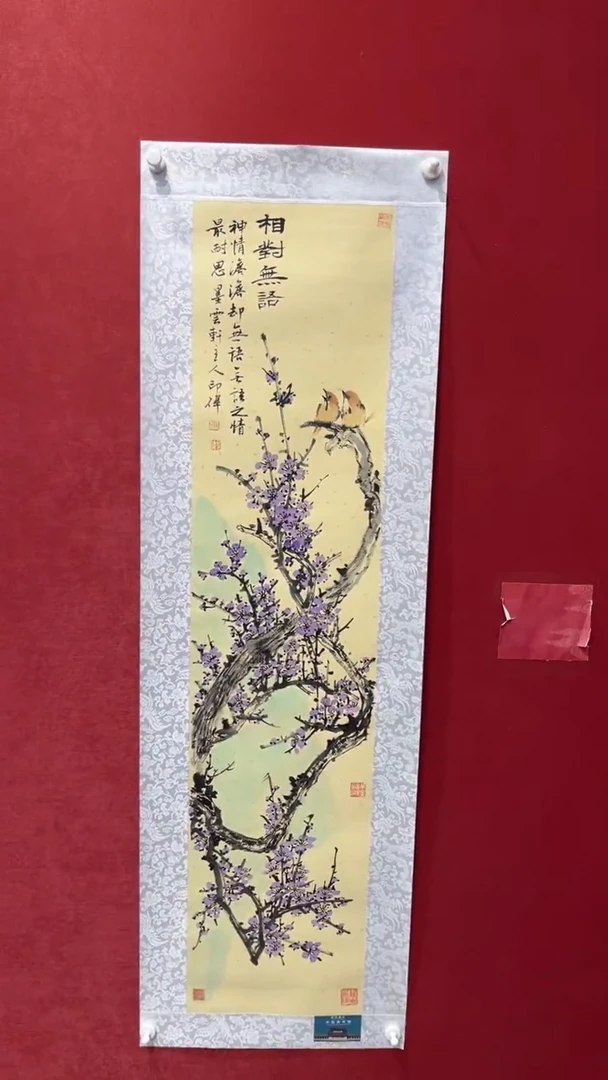 相對無語
神情濃濃却無語無語之情
最耐思 墨雲軒主人